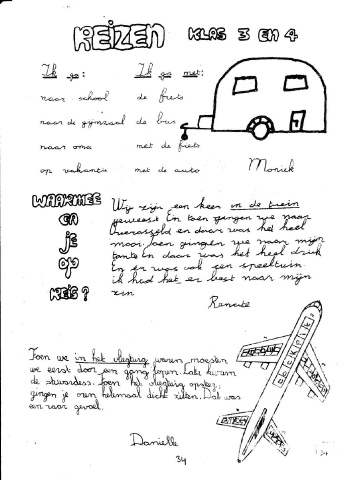 REIZEN KLAS 3 EN 4
Ik ga: Ik ga met:
naar school de fiets
naar de gijmzaal de bus
naar oma met de fiets
op vakantie met de auto
Moniek
WAARMEE
GA
je
op
REIS?
Wij zijn een keer in de trein
geweest En toen gingen we naar
Overasseld en daar was het heel
mooi toen gingen we naar mijn
tante en daar was het heel druk
En er was ook een speeltuin.
ik had het er best naar mijn
zin.
Renate
Toen we in het vliegtuig waren moesten
we eerst door een gang lopen. Later kwam
de stuwardess. toen het vliegtuig opsteeg
gingen je oren helemaal dicht zitten. Dat was
een raar gevoel.
Danielle
34
34